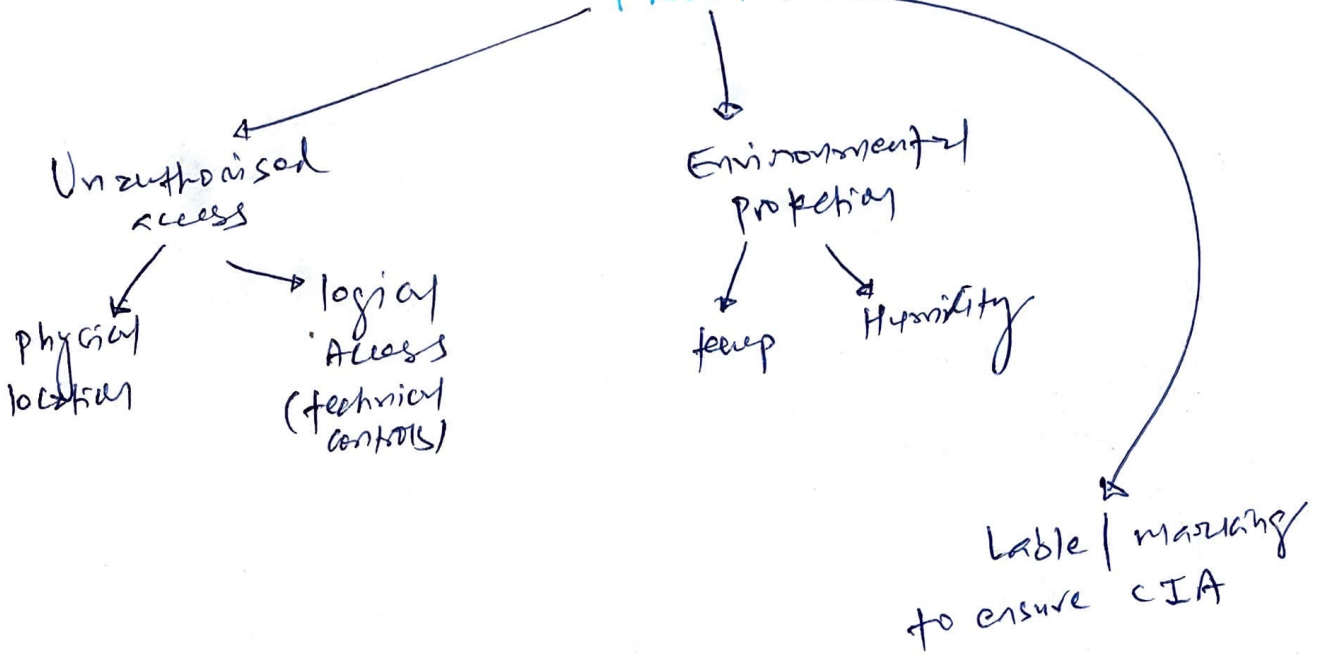 Unauthorised
access
Physical
location
logical
Access
(technical
controls)
Environmental
protection
temp
Humidity
Lable / marking
to ensure CIA